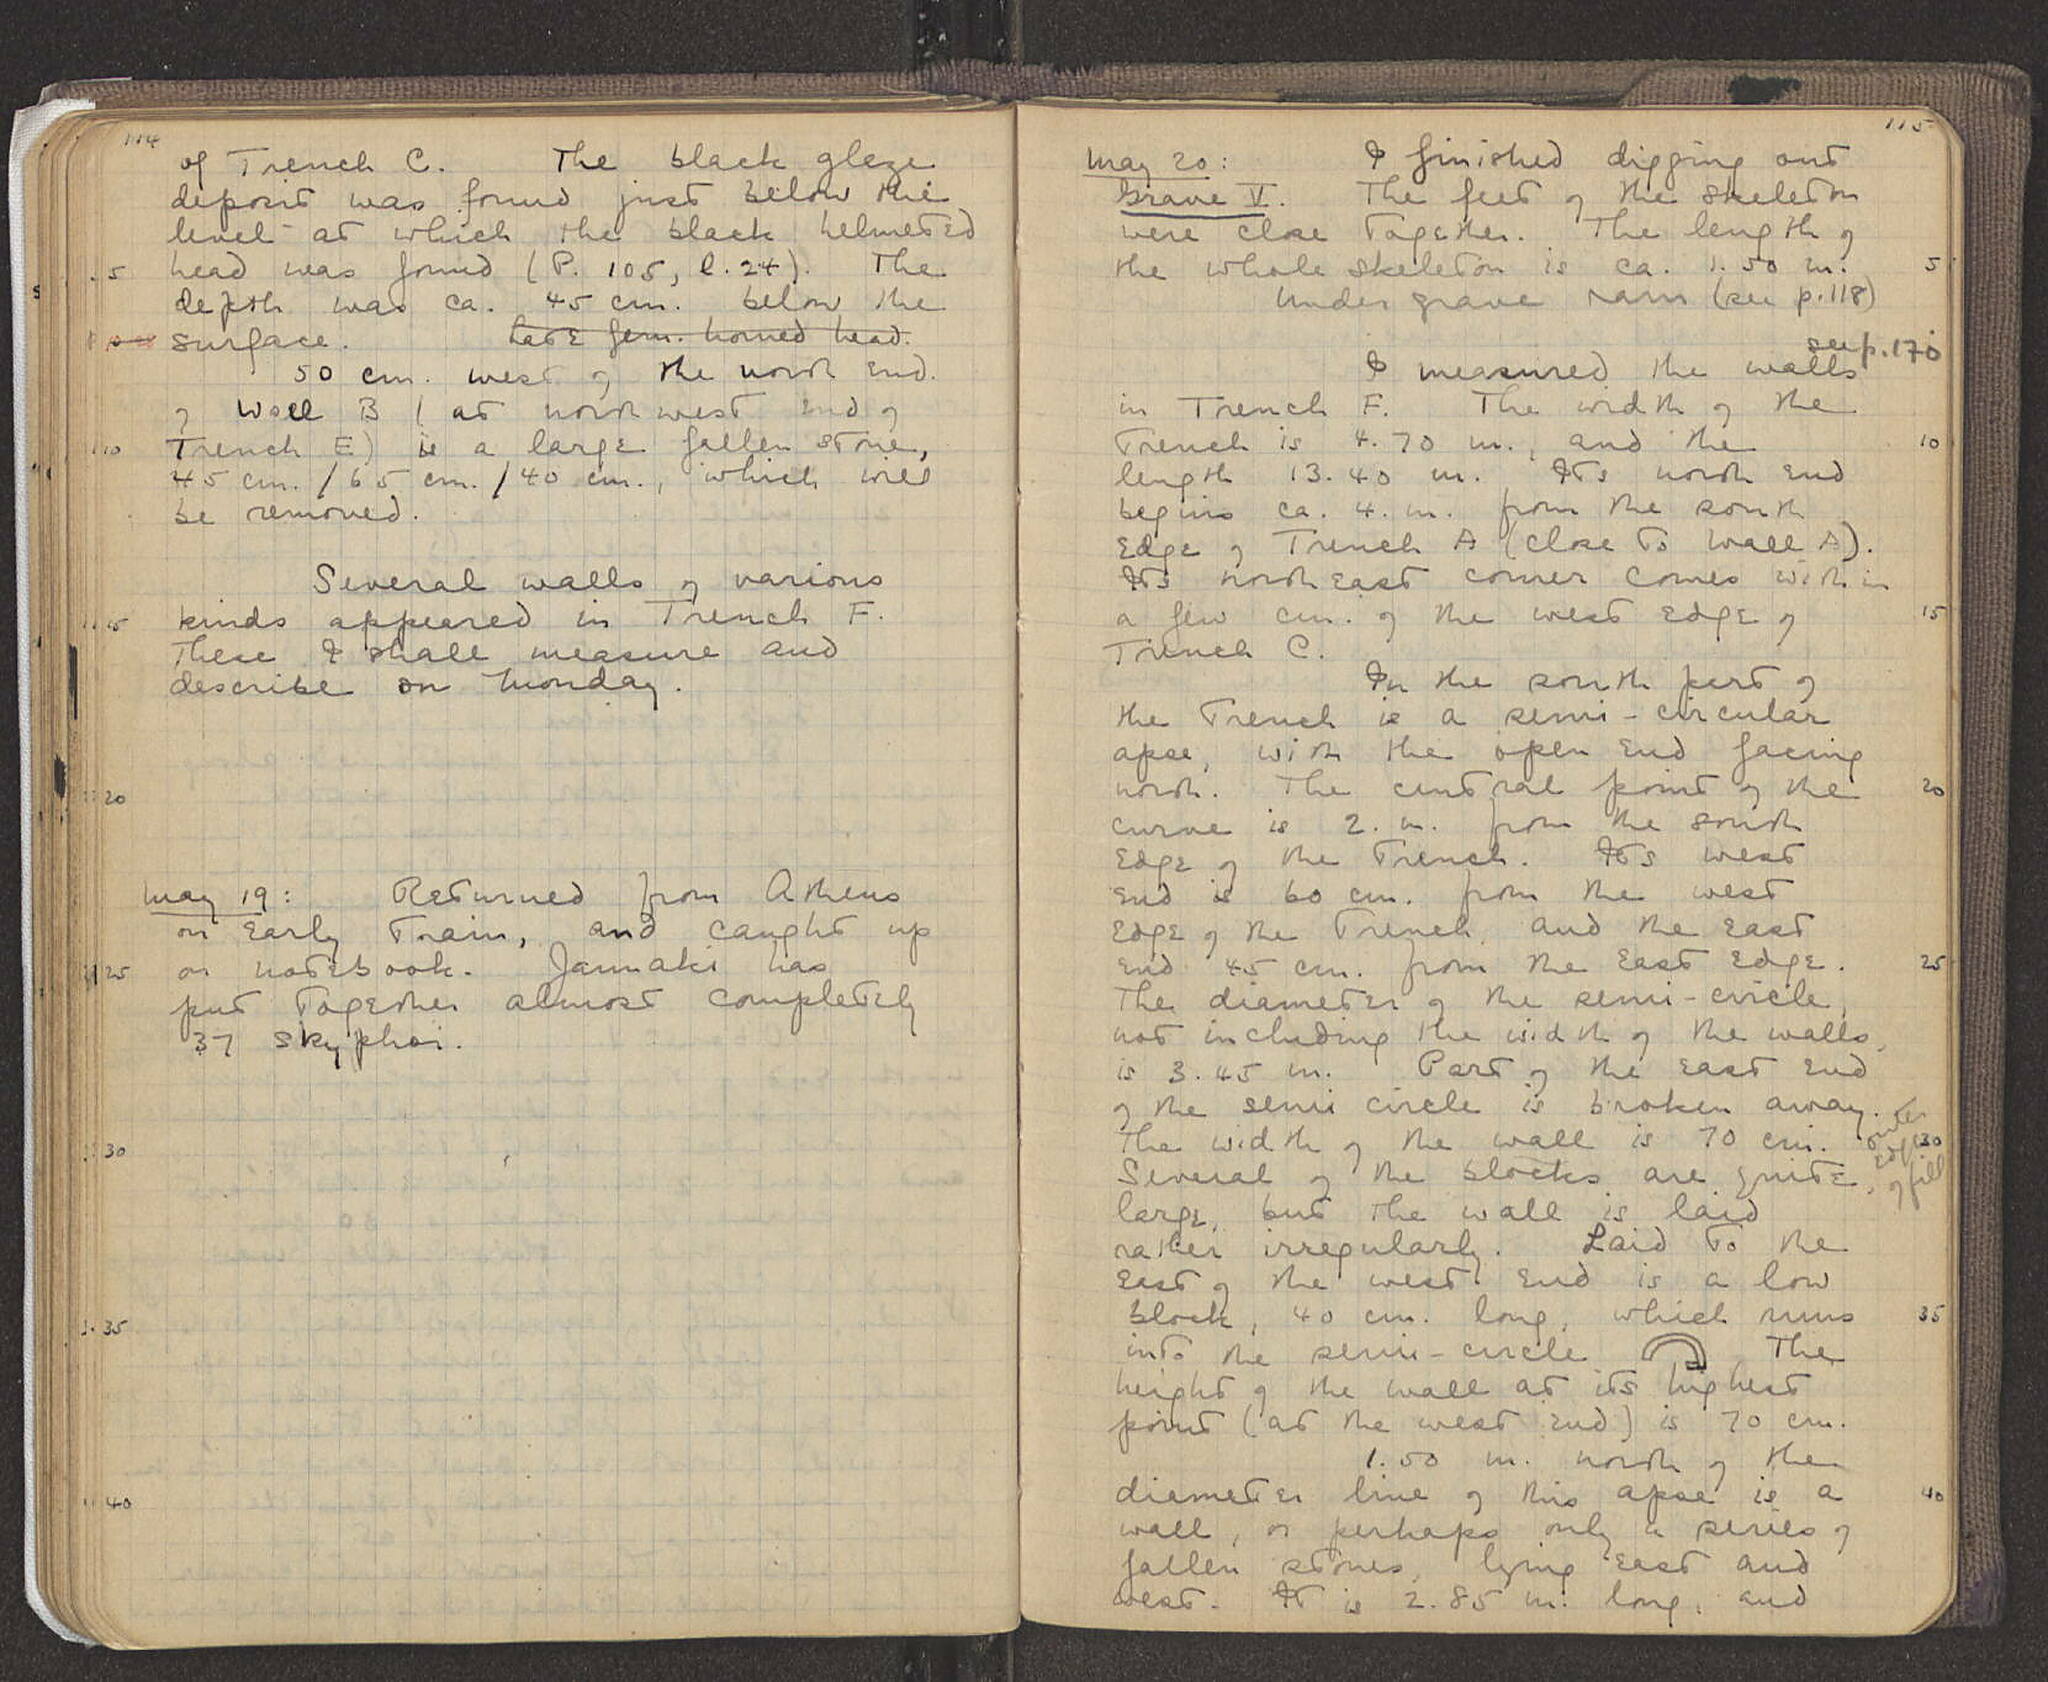 114
of Trench C. The black glaze
deposit was found just below the
level at which the black helmeted
5 head was found (P. 105, l. 24). The
depth was ca. 45 cm. below the
surface. horned head.
50 cm. west of the north end
of Wall B (at northwest end of
10 Trench E) is a large fallen stone,
45 cm. / 65 cm. / 40 cm., which will
be removed.
Several walls of various
15 kinds appeared in Trench F.
These I shall measure and
describe on Monday.
20
May 19: Returned from Athens
on early train, and caught up
25 on notebook. Jannaki has
put together almost completely
37 skyphoi.
30
35
40
115
May 20: I finished digging out
Grave V. The feet of the skeleton
were close together. The length of
the whole skeleton is ca. 1.50 m. 5
Under grave (see p. 118)
see p. 170
I measured the walls
in Trench F. The width of the
Trench is 4.70 m., and the 10
length 13.40 m. Its north end
begins ca. 4. m. from the south
edge of Trench A (close to Wall A).
Its northeast corner comes within
a few cm. of the west edge of 15
Trench C.
In the south part of
the Trench is a semi-circular
apse, with the open end facing
north. The central point of the 20
curve is 2. m. from the south
edge of the Trench. Its west
end is 60 cm. from the west
edge of the Trench, and the east
end 45 cm. from the east edge. 25
The diameter of the semi-circle,
not including the width of the walls,
is 3.45 m. Part of the east end
of the semi circle is broken away.
The width of the wall is 70 cm. 30
outer
edge
of fill
Several of the blocks are quite
large, but the wall is laid
rather irregularly. Laid to the
east of the west end is a low
block, 40 cm. long, which runs 35
into the semi-circle. The
height of the wall at its highest
point (at the west end) is 70 cm.
1.50 m. north of the
diameter line of this apse is a 40
wall, or perhaps only a series of
fallen stones, lying east and
west. It is 2.85 m. long, and